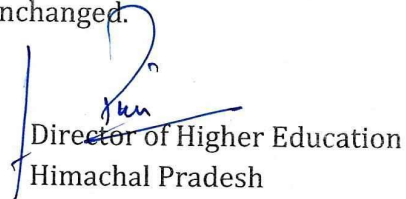 nchanged.
Director of Higher Education
Himachal Pradesh